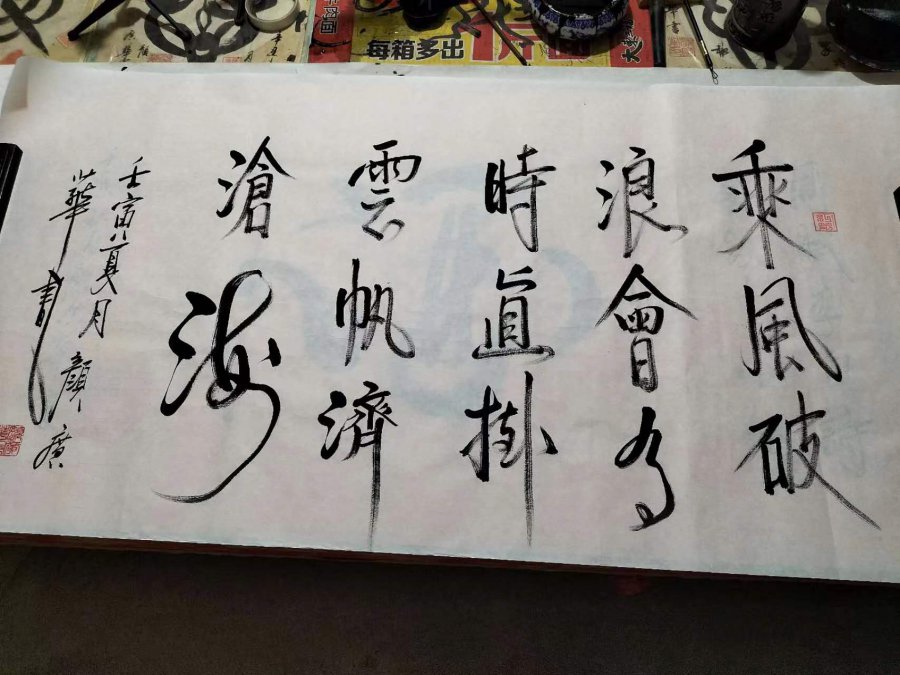 每箱多出
乘風破
浪會有
時直掛
雲帆濟
滄海
壬寅夏月顏廣
華書